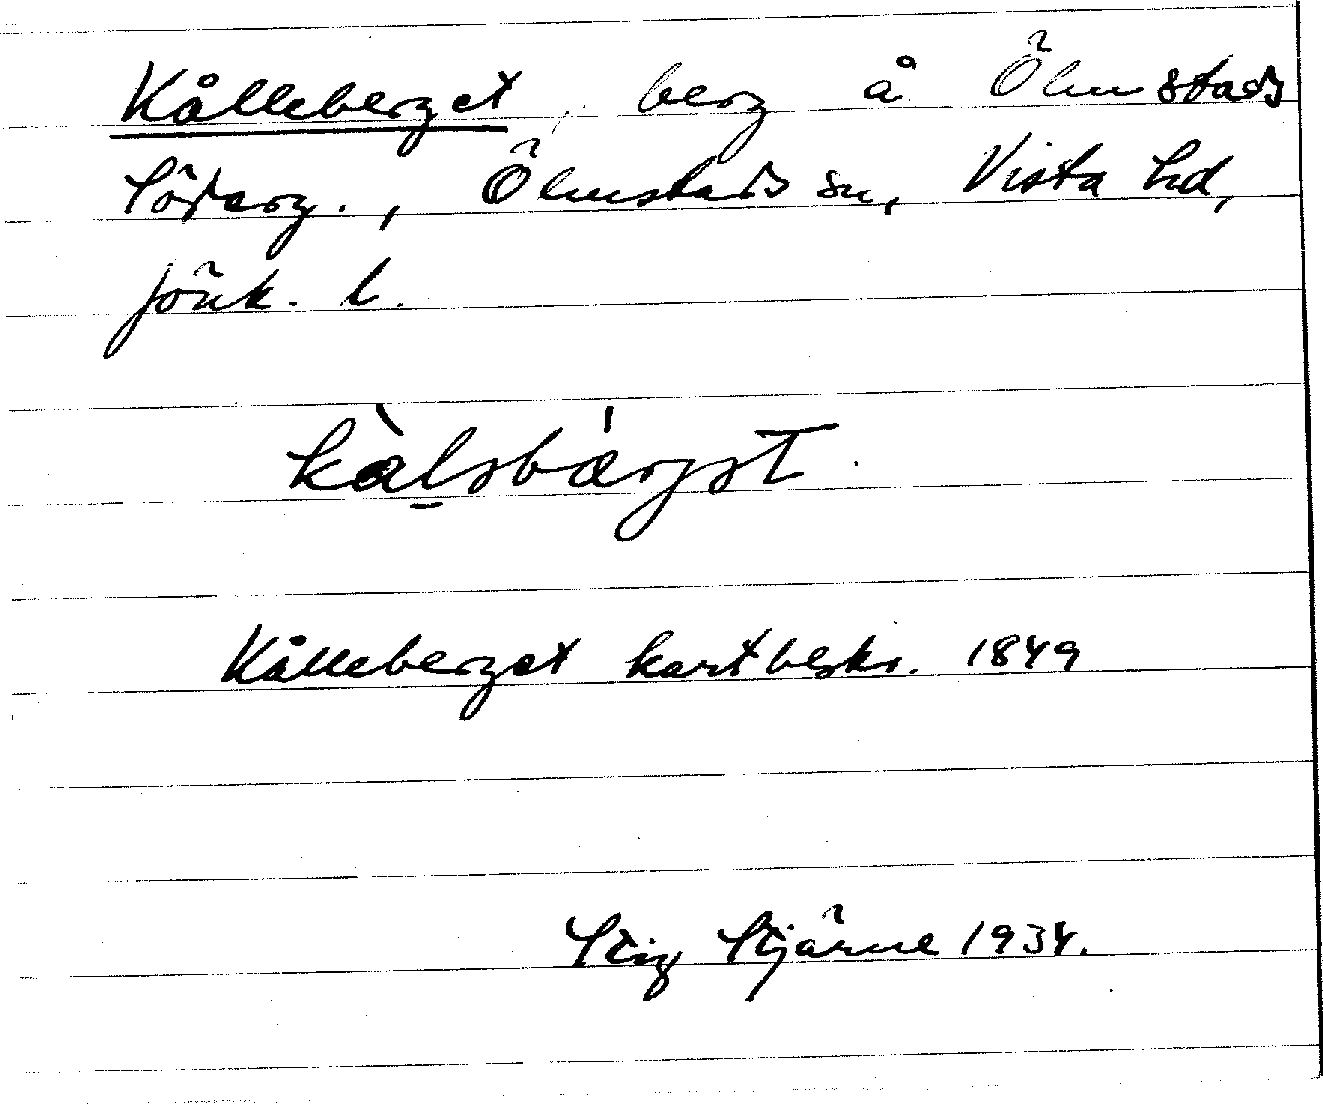 Kålleberget, berg å Ölmstads
Söderg., Ölmstads sn, Vista hd,
Jönk. l.
kàl̠əbær̍jət.
Kålleberget kartbeskr. 1849
Stig Stjärne 1934.